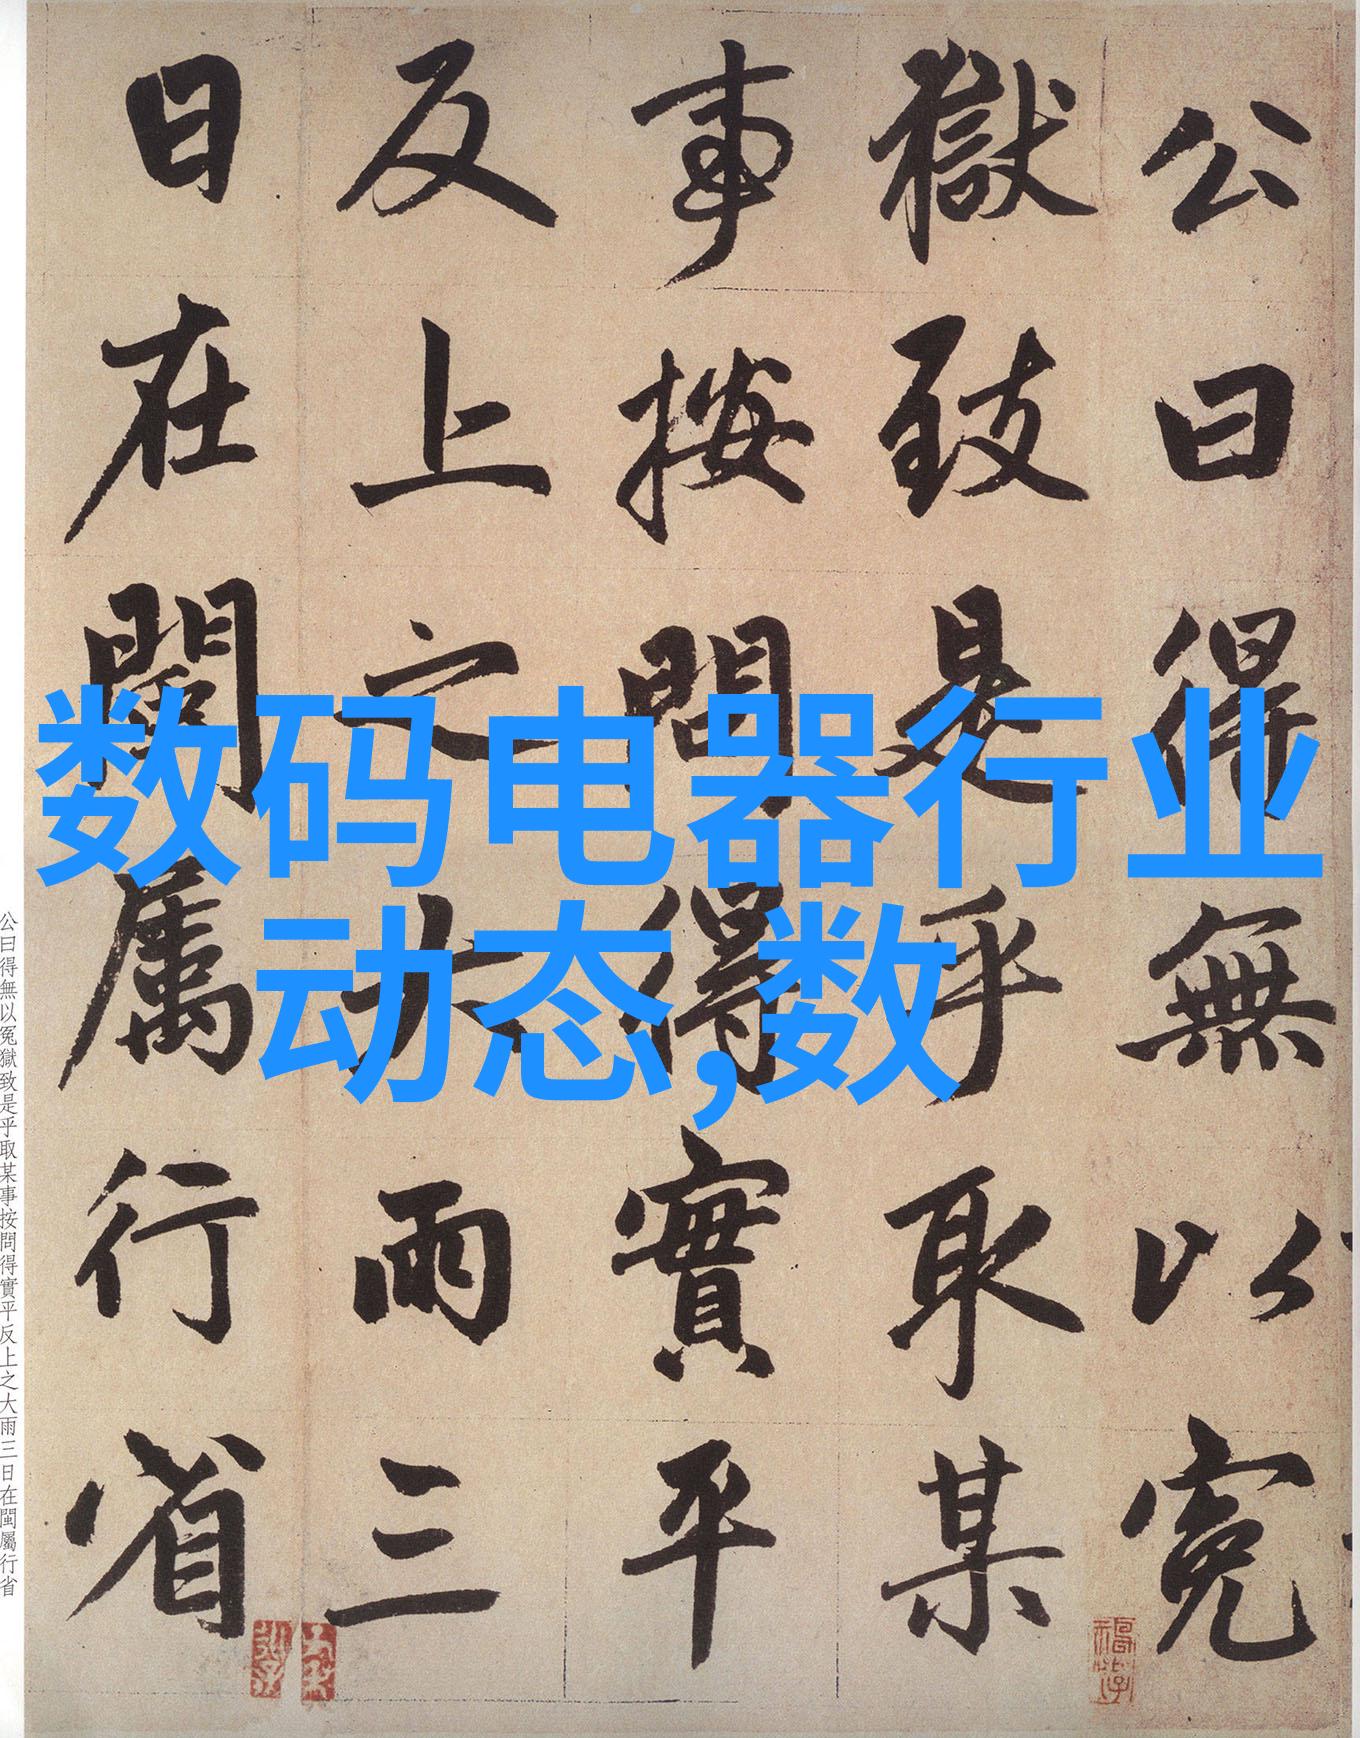 公曰得無以冤
獄致是乎取某
事按問得實平
反上之大雨三
日在閩属行省
数码电器行业
动态,数
公曰得無以冤獄致是乎取某事按問得實平反上之大雨三日在閩屬行省